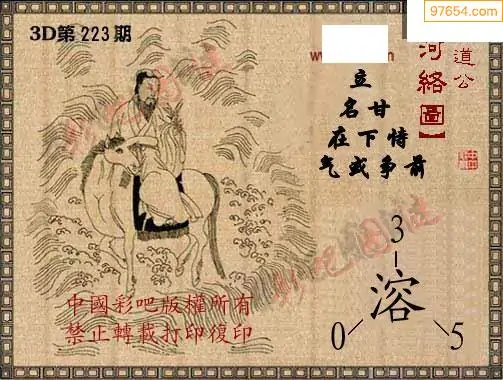 97654.com
3D第 223 期
道公
河絡圖】
立
名甘
在下恃
气或争前
3
溶
0 5
中國彩吧版權所有
禁止轉載打印復印